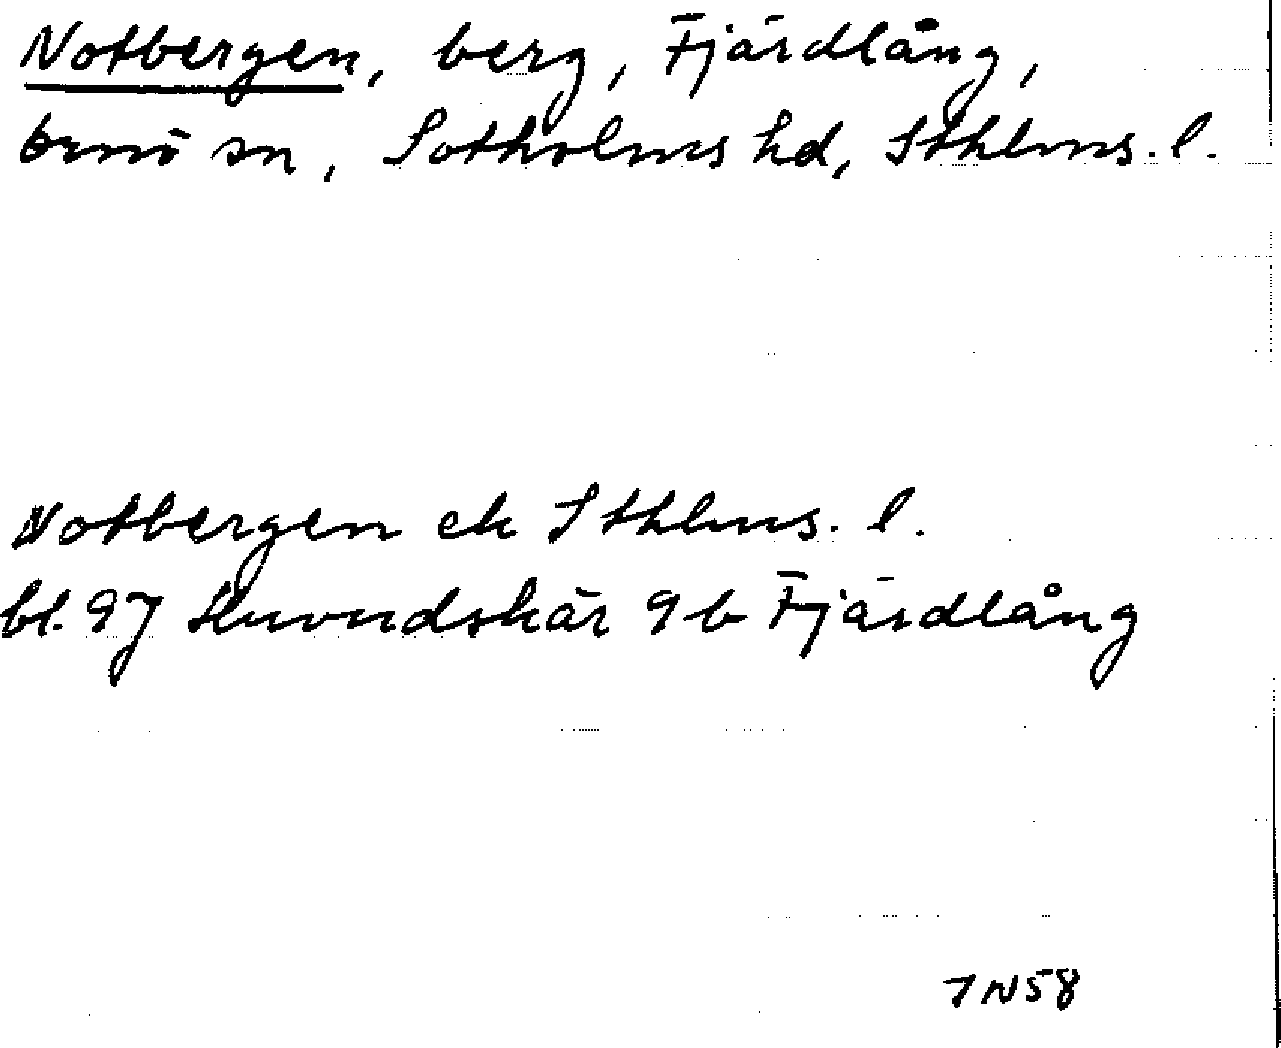 Notbergen, berg, Fjärdlång,
Ornö sn, Sotholms hd, Sthlms. l.
Notbergen ek Sthlms. l.
bl. 97 Huvudskär 9 b Fjärdlång
7 N 58